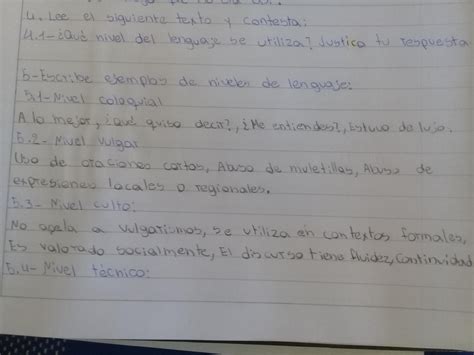 4. Lee el siguiente texto y contesta:
4.1-¿Qué nivel del lenguaje se utiliza? Justica tu respuesta
5-Escribe ejemplos de niveles de lenguaje:
5.1-Nivel coloquial
A lo mejor, ¿qué quiso decir?, ¿Me entiendes?, Estuvo de lujo.
5.2- Nivel vulgar
Uso de oraciones cortas, Abuso de muletillas, Abuso de
expresiones locales o regionales.
5.3- Nivel culto:
No apela a vulgarismos, se utiliza en contextos formales,
Es valorado socialmente, El discurso tiene fluidez, Continuidad
5.4-Nivel técnico: